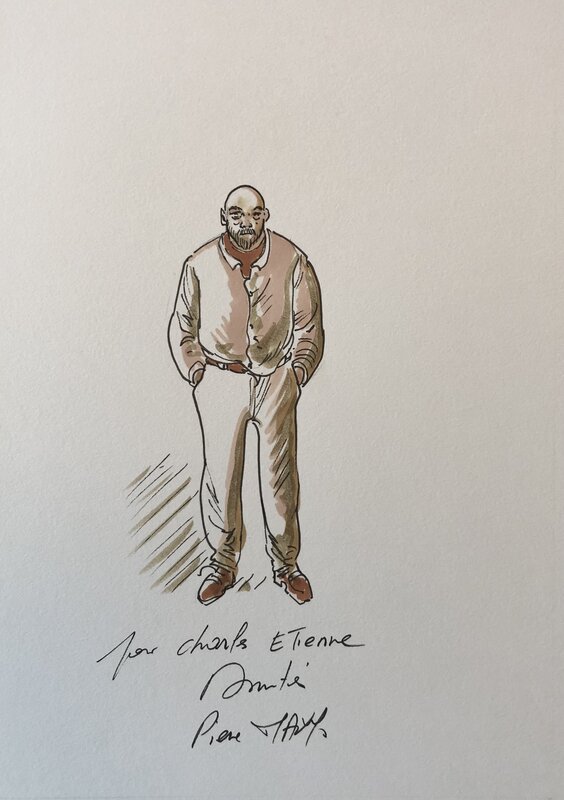 pour Charles ETienne
Amitié
Pierre